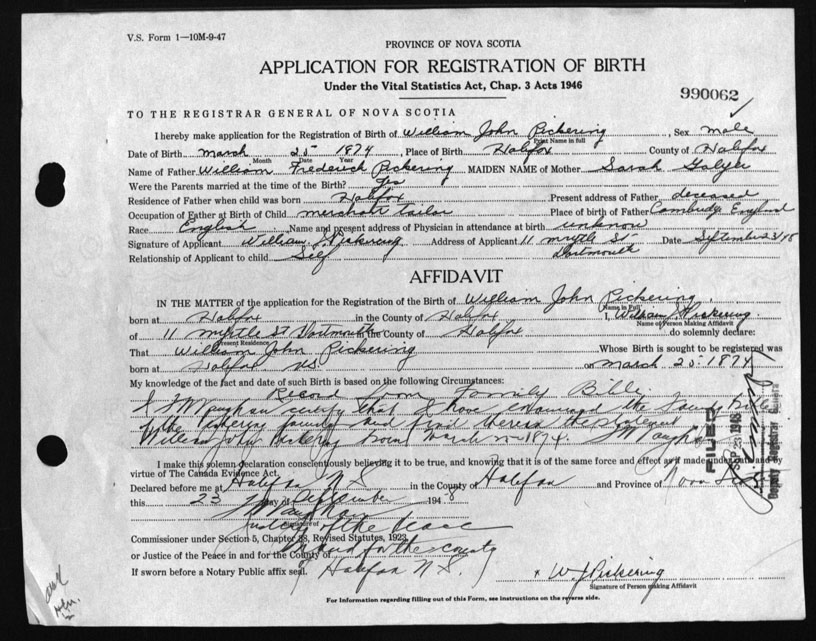 V.S. Form 1—10M-9-47
PROVINCE OF NOVA SCOTIA
APPLICATION FOR REGISTRATION OF BIRTH
Under the Vital Statistics Act, Chap. 3 Acts 1946
990062
TO THE REGISTRAR GENERAL OF NOVA SCOTIA
I hereby make application for the Registration of Birth of William John Pickering, Sex male
Print Name in full
Date of Birth March 25 1874, Place of Birth Halifax County of Halifax
Month Date Year
Name of Father William Frederick Pickering MAIDEN NAME of Mother Sarah
Were the Parents married at the time of the Birth? Yes
Residence of Father when child was born Halifax Present address of Father deceased
Occupation of Father at Birth of Child merchant tailor Place of birth of Father Cambridge England
Race English Name and present address of Physician in attendance at birth unknow
Signature of Applicant William J Pickering Address of Applicant 11 Myrtle St Date September 23/48
Relationship of Applicant to child Self Dartmouth
AFFIDAVIT
IN THE MATTER of the application for the Registration of the Birth of William John Pickering
Name in Full
born at Halifax in the County of Halifax I, William J Pickering
Name of Person Making Affidavit
of 11 Myrtle St Dartmouth in the County of Halifax do solemnly declare:
Present Residence
That William John Pickering Whose Birth is sought to be registered was
born at Halifax NS on March 25 1874
My knowledge of the fact and date of such Birth is based on the following Circumstances:
Record from Family Bible
I certify that I have examined the Family Bible
of the Pickering family and find therein the statement
William John Pickering born March 25 1874.
FILED
SEP 23 1948
Deputy Registrar General
I make this solemn declaration conscientiously believing it to be true, and knowing that it is of the same force and effect as if made under oath and by
virtue of The Canada Evidence Act.
Declared before me at Halifax N S in the County of Halifax and Province of Nova Scotia
this 23 day of September 1948
Signature of
Justice of the Peace
Commissioner under Section 5, Chapter 38, Revised Statutes, 1923,
in and for the county
or Justice of the Peace in and for the County of
If sworn before a Notary Public affix seal. Halifax N.S. x W J Pickering
Signature of Person Making Affidavit
For Information regarding filling out of this Form, see instructions on the reverse side.